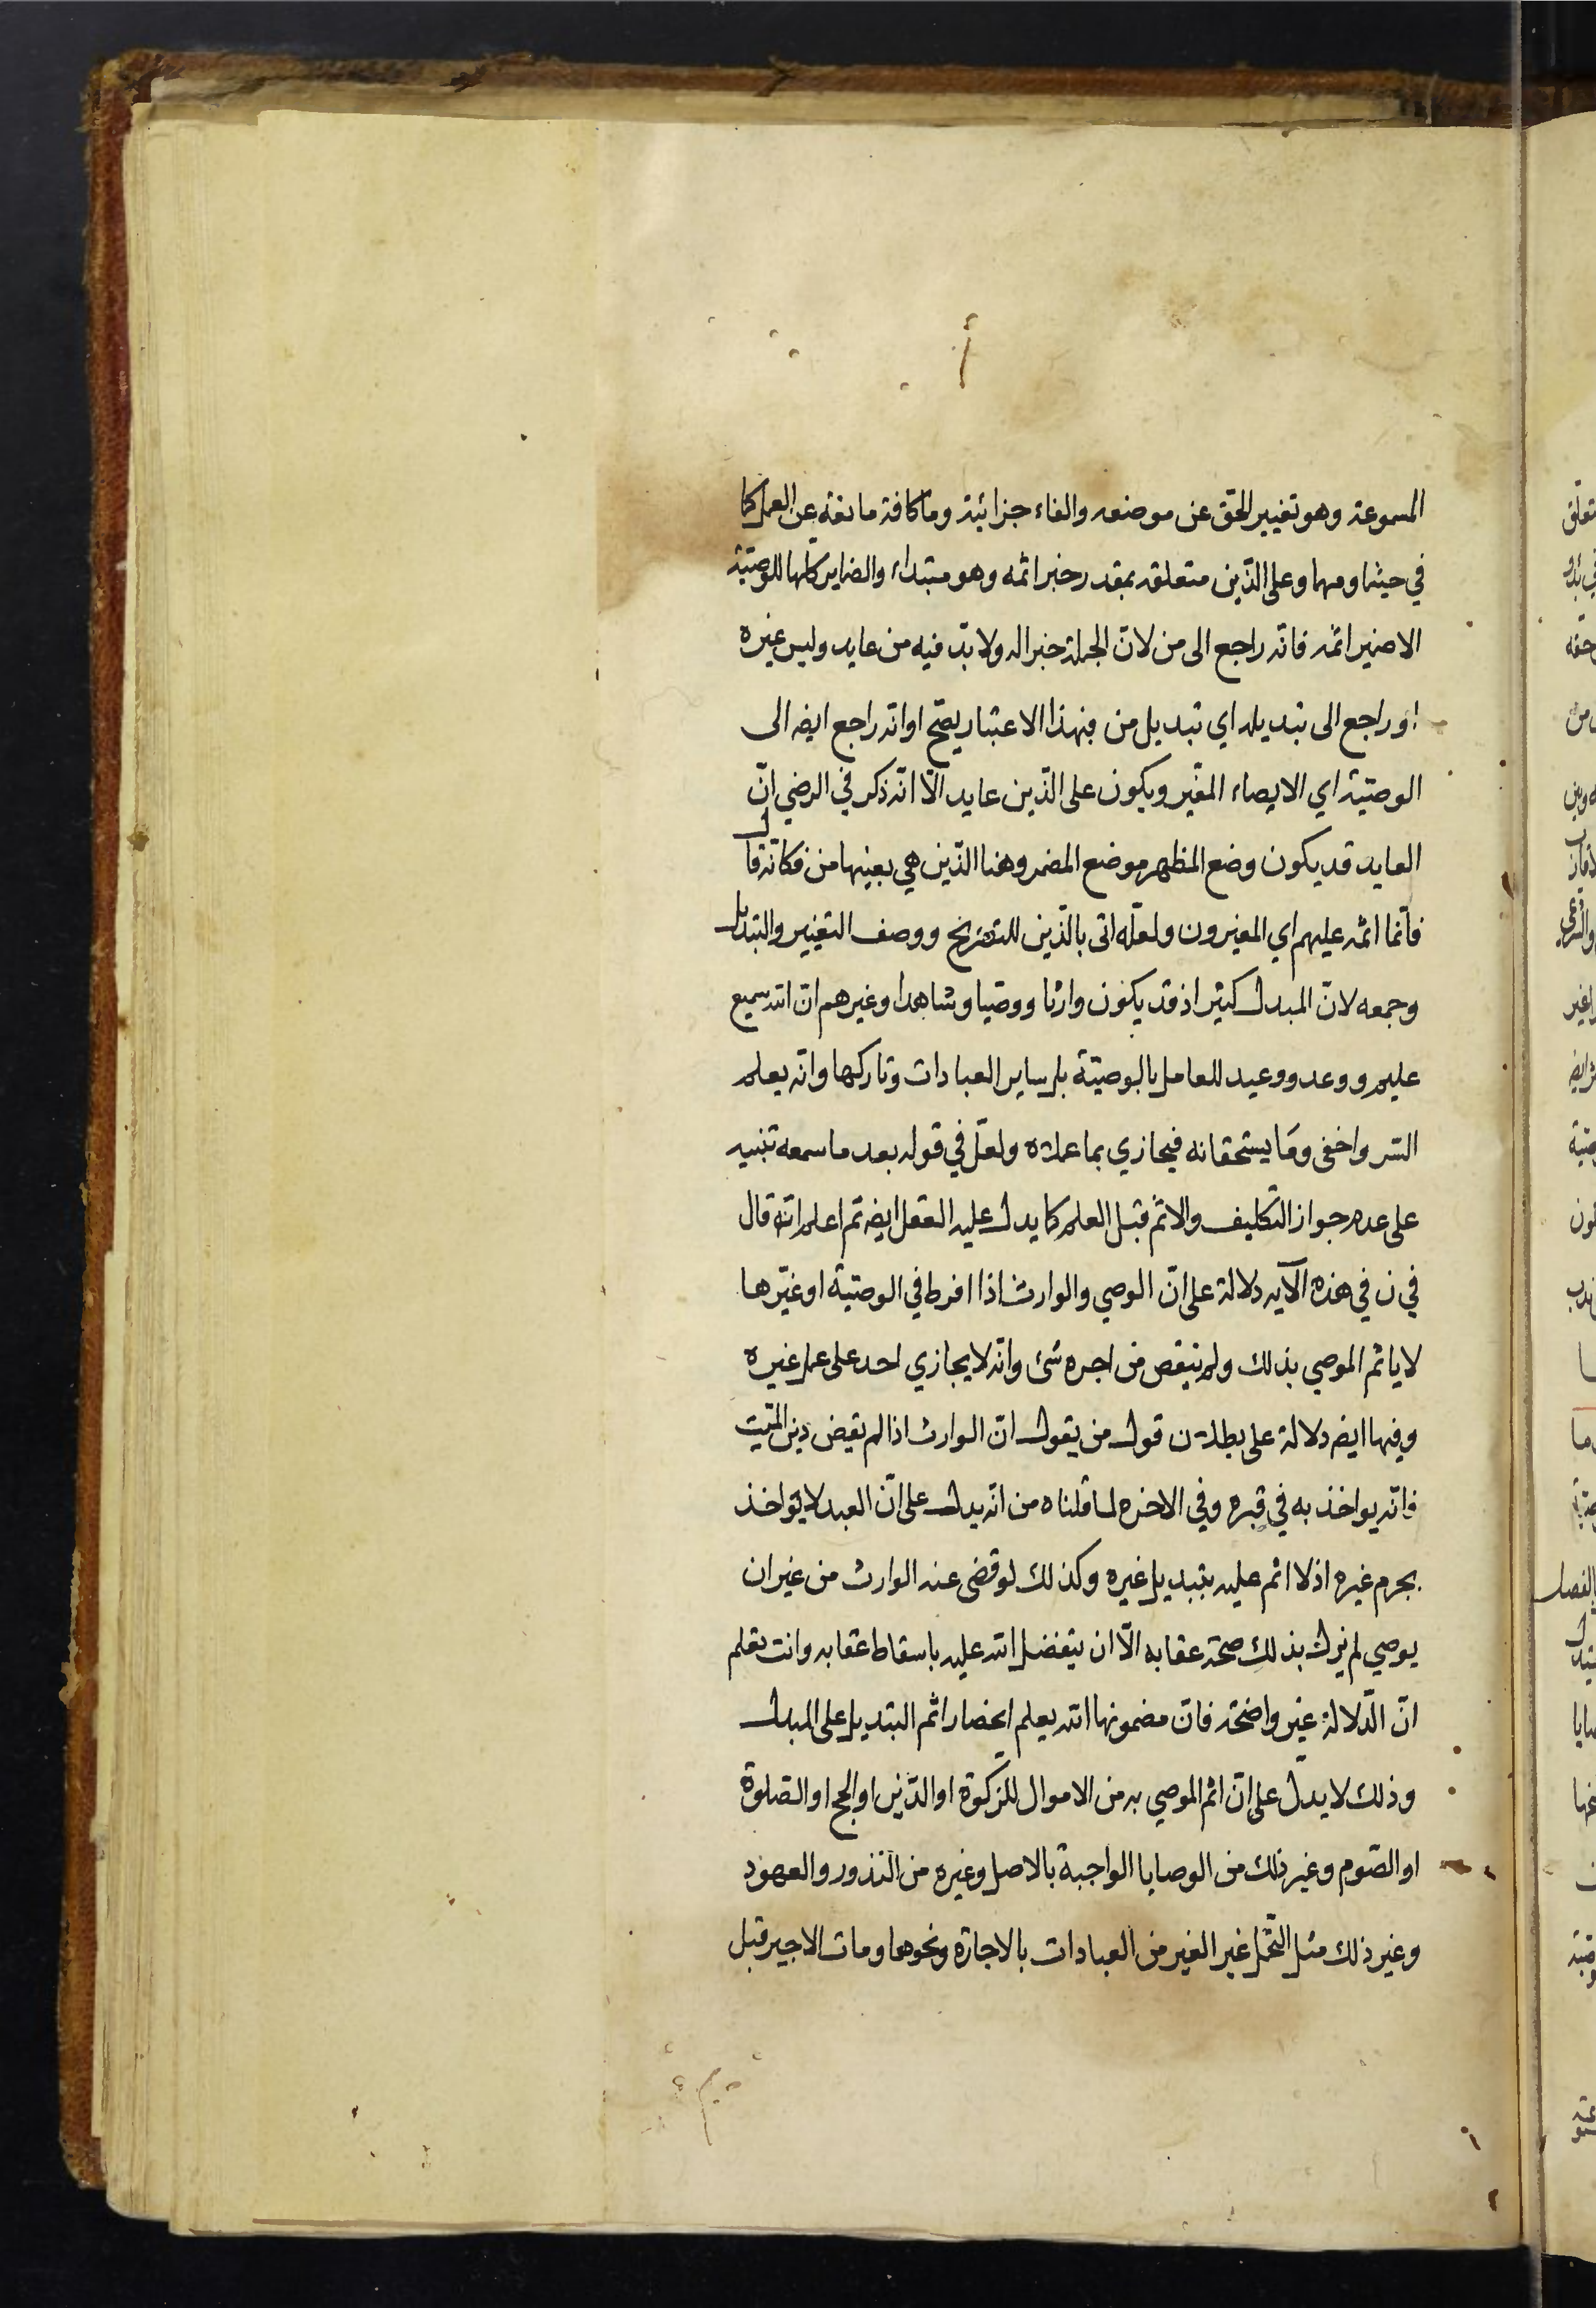 المسموعة وهو تغيير الحقّ عن موضعه والفاء جزائية وما كافة مانعة عن العمل كما
في حيثما ومهما وعلى الذّين متعلقة بمقدر خبر اثمه وهو مبتداء والضماير كلّها للوصيّة
الا ضمير اثمه فانّه راجع الى من لانّ الجملة خبر اله ولا بدّ فيه من عايد وليس غيره
او راجع الى تبديله اي تبديل من فبهذا الاعتبار يصّح او انّه راجع ايضه الى
الوصيّة اي الايصاء المغّير ويكون على الذّين عايد الّا انّه ذكر في الرضي انّ
العايد قد يكون وضع المظهر موضع المضمر وهنا الذّين هي بعينها من فكانّه قال
فانّما اثمه عليهم اي المغيرون ولعلّه اتى بالذّين للتصريح ووصف التغيير والتبديل
وجمعه لانّ المبدل كثير اذ قد يكون وارثا ووصّيا وشاهدا وغيرهم انّ الله سميع
عليم ووعد ووعيد للعامل بالوصيّة بل ساير العبادات وتاركها وانّه يعلم
السّر واخفى ومَا يستحقانه فيجازي بما عملاه ولعلّ في قوله بعد ما سمعه تنبيه
على عدم جواز التكليف والاثم قبل العلم كما يدل عليه العقل ايضه ثم اعلم انّه قال
في ن في هذه الآيه دلالة على انّ الوصي والوارث اذا افرط في الوصيّة او غيّرها
لا ياثم الموصي بذلك ولم ينقص من اجره شئ وانّه لا يجازي احد على عمل غيره
وفيها ايضه دلالة على بطلان قول من يقول انّ الوارث اذا لم يقض دين الميّت
فانّه يواخذ به في قبره وفي الاخره لما قلناه من انّه يدل على انّ العبد لا يؤاخذ
بجرم غيره اذ لا اثم عليه بتبديل غيره وكذلك لو قضى عنه الوارث من غير ان
يوصي لم يزل بذلك صحّة عقابه الّا ان يتفضل الله عليه باسقاط عقابه وانت تعلم
انّ الّدلالة غير واضحّة فانّ مضمونها الله يعلم انحصار اثم التبديل على المبدل
وذلك لا يدلّ على انّ اثم الموصي به من الاموال للزكوة او الدّين او الحج او الصّلوة
او الصّوم وغير ذلك من الوصايا الواجبة بالاصل وغيره من النّذور والعهود
وغير ذلك مثل التّحمل غير الغير من العبادات بالاجارة ونحوها ومات الاجير قبل